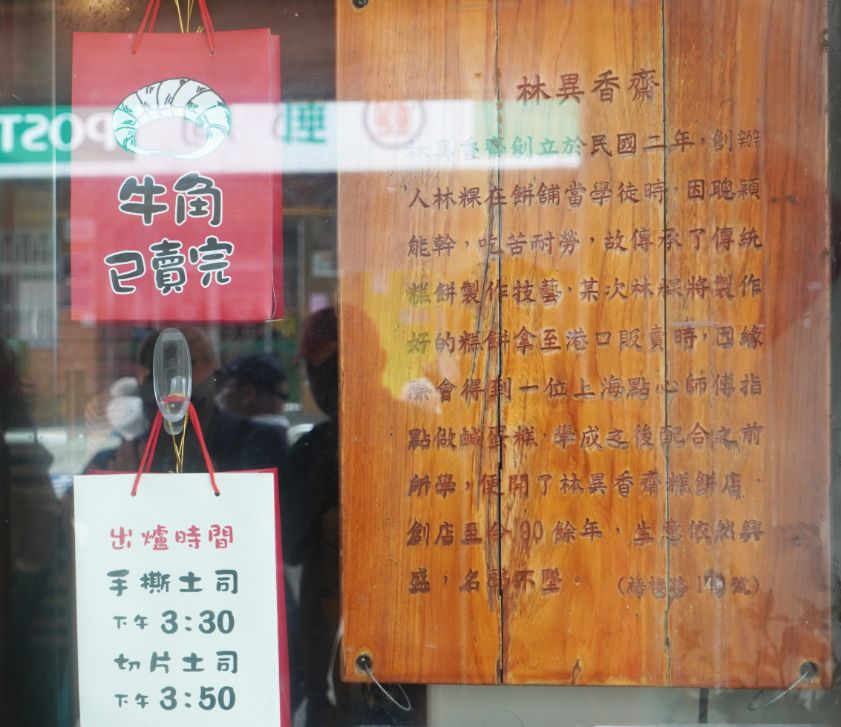 牛角
已賣完
出爐時間
手撕土司
下午 3:30
切片土司
下午 3:50
林異香齋
林異香齋創立於民國二年，創辦
人林粿在餅舖當學徒時，因聰穎
能幹，吃苦耐勞，故傳承了傳統
糕餅製作技藝，某次林粿將製作
好的糕餅拿至港口販賣時，因緣
際會得到一位上海點心師傅指
點做鹹蛋糕，學成之後配合之前
所學，便開了林異香齋糕餅店．
創店至今90餘年，生意依然興
盛，名聲不墜。
POST